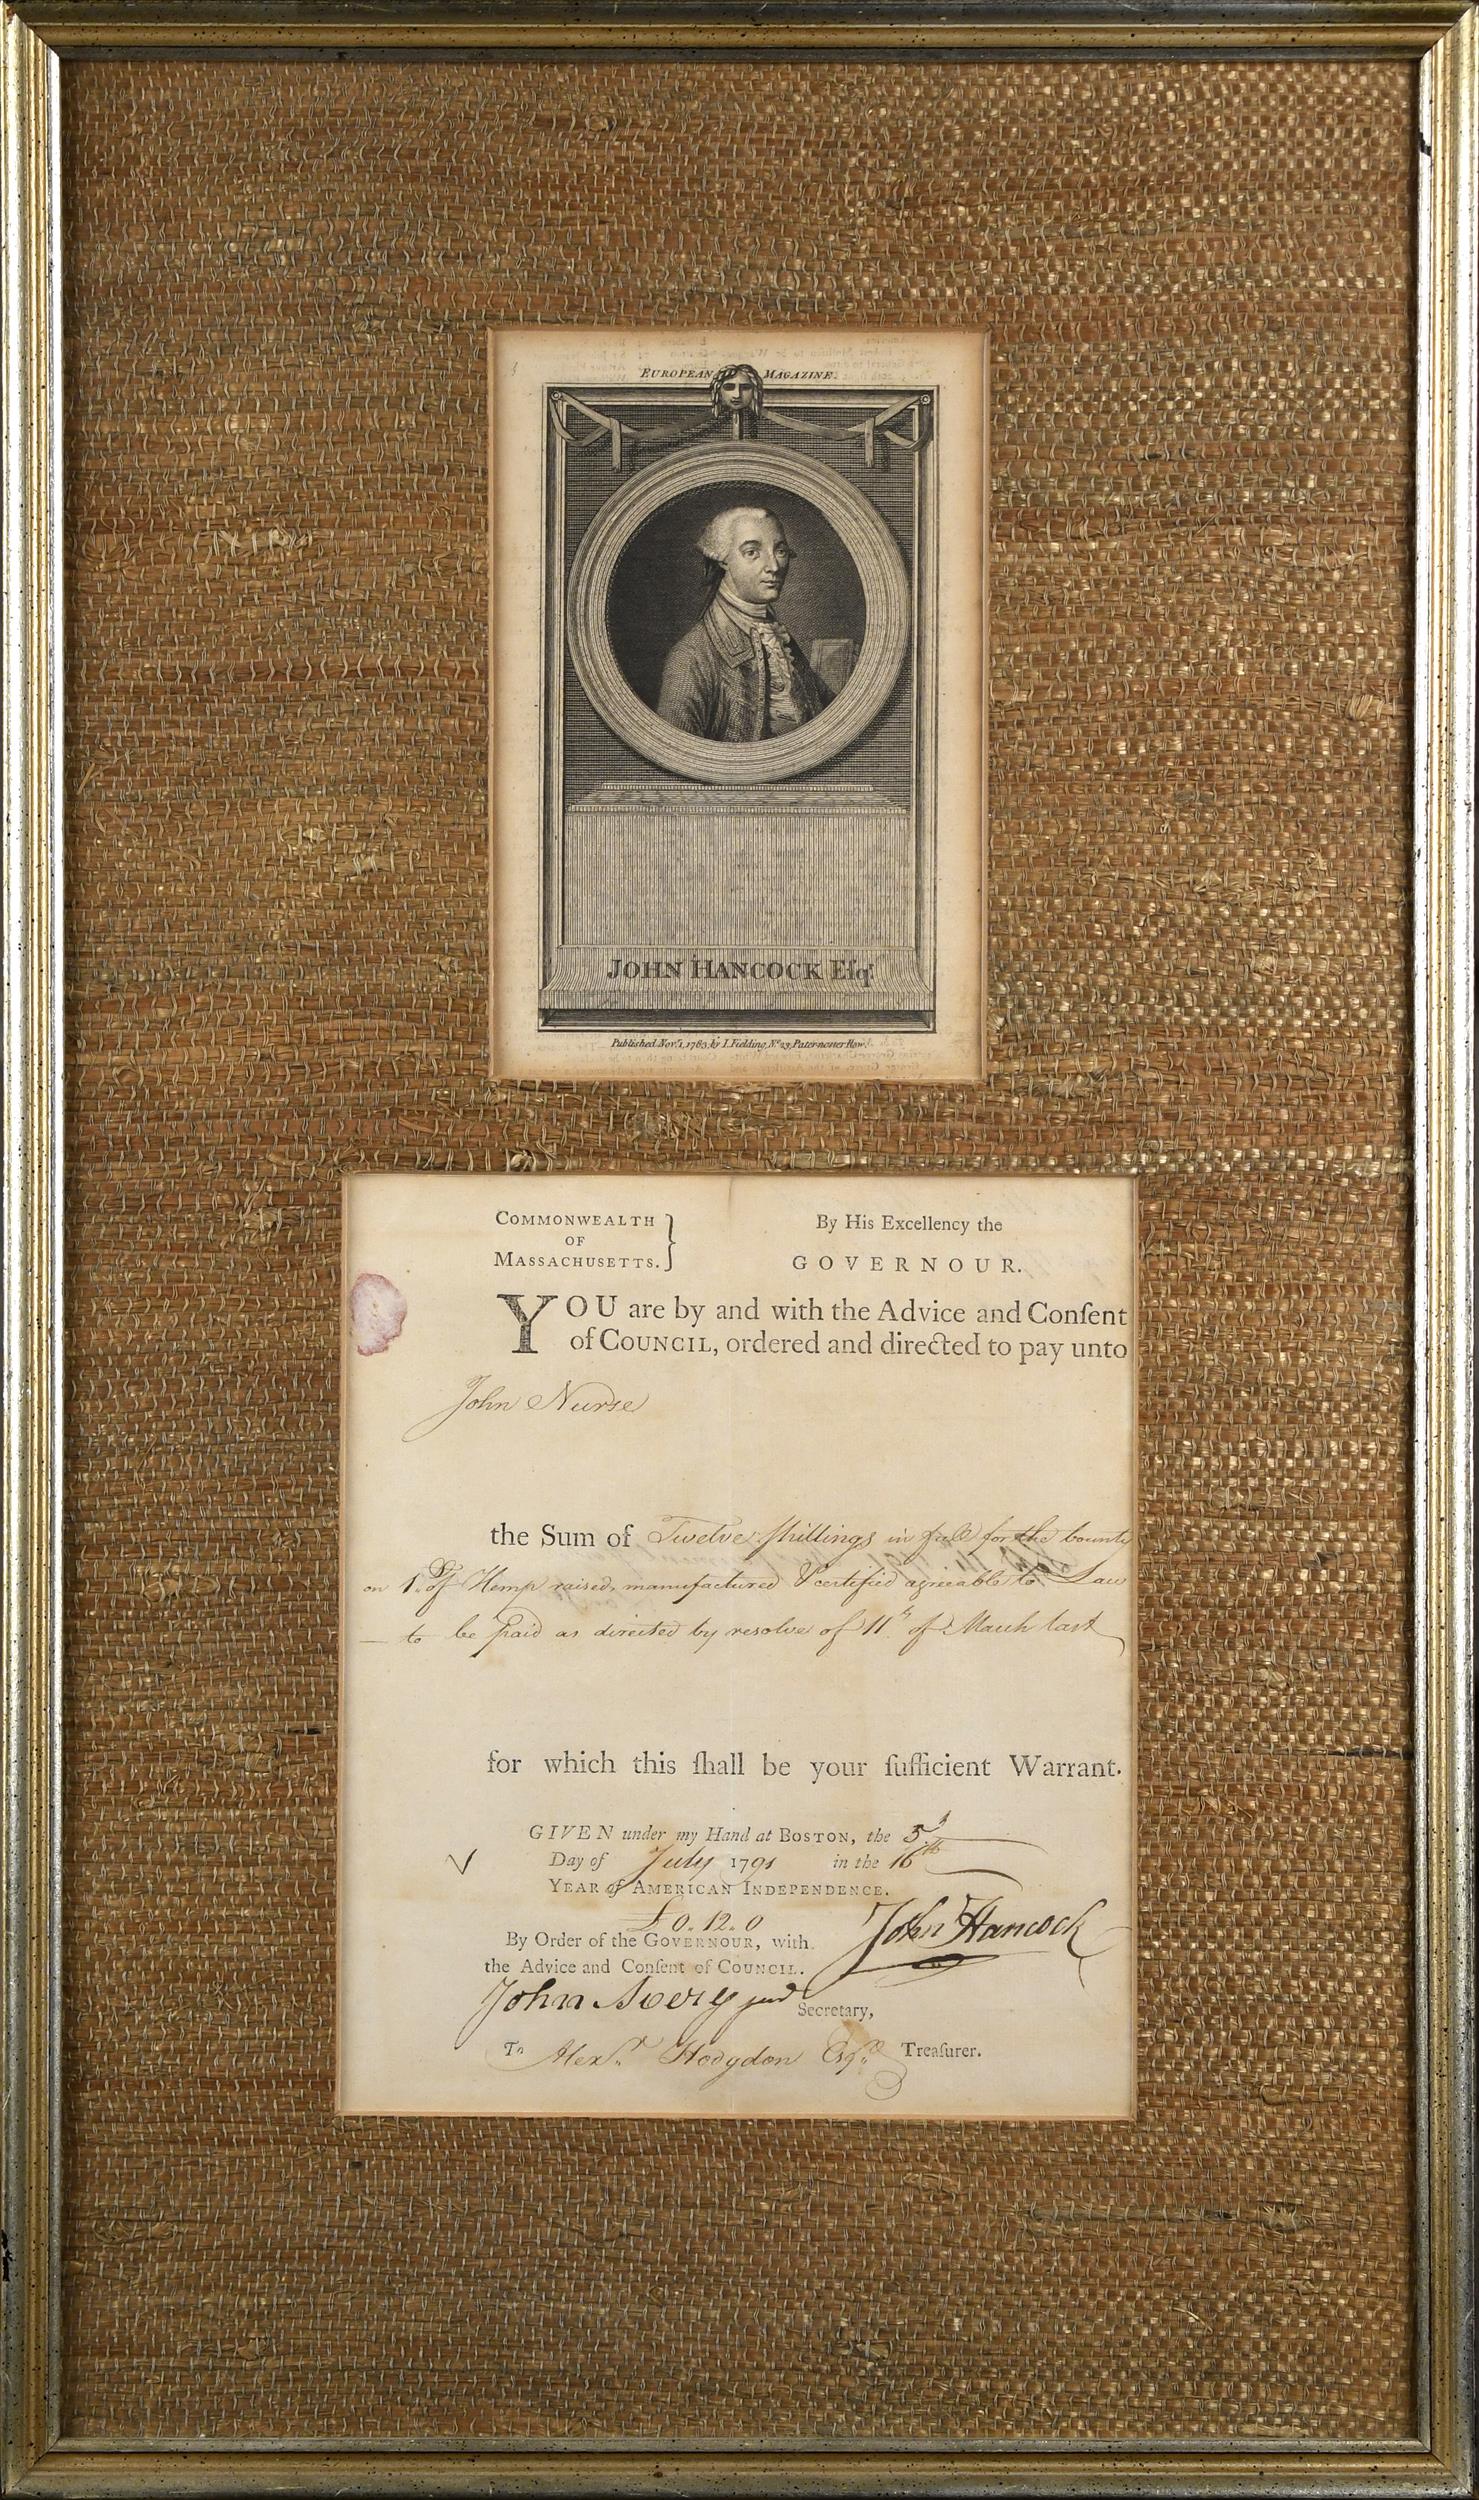 EUROPEAN MAGAZINE.
JOHN HANCOCK Eſqr.
Published Novr. 1, 1783, by I. Fielding, No. 23, Pater-noster Row.
COMMONWEALTH
OF
MASSACHUSETTS. }
By His Excellency the
GOVERNOUR.
YOU are by and with the Advice and Conſent
of COUNCIL, ordered and directed to pay unto
John Nurse
the Sum of Twelve shillings in full for the bounty
on 1 Ct of Hemp raised, manufactured & certified agreeable to Law
— to be paid as directed by resolve of 11th of March last
for which this ſhall be your ſufficient Warrant.
GIVEN under my Hand at BOSTON, the 5th
Day of July 1791 in the 16th
YEAR of AMERICAN INDEPENDENCE.
£0..12..0
By Order of the GOVERNOUR, with
the Advice and Conſent of COUNCIL.
John Hancock
John Avery junr Secretary,
To Alexr. Hodgdon Esqr. Treaſurer.